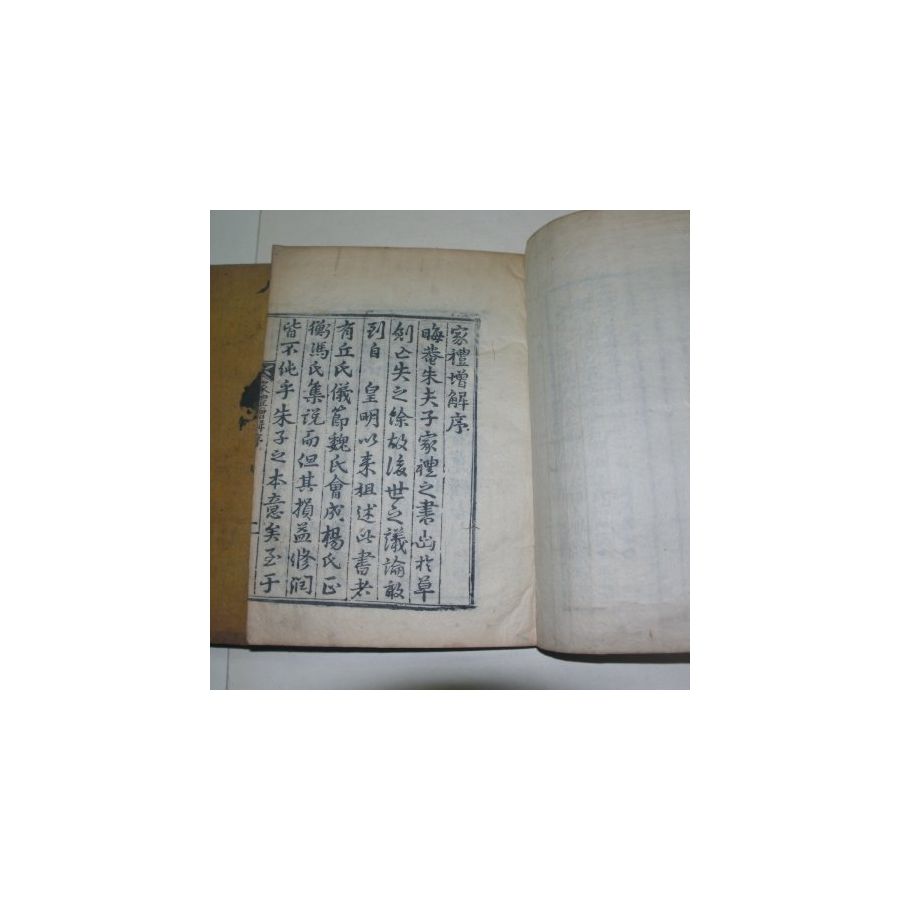 家禮增解序
晦菴朱夫子家禮之書出於草
創亡失之餘故後世之議論敢
到自 皇明以来祖述此書者
有丘氏儀節魏氏會成楊氏正
衡馮氏集説而但其損益修潤
皆不純乎朱子之本意矣至于
家禮增解序